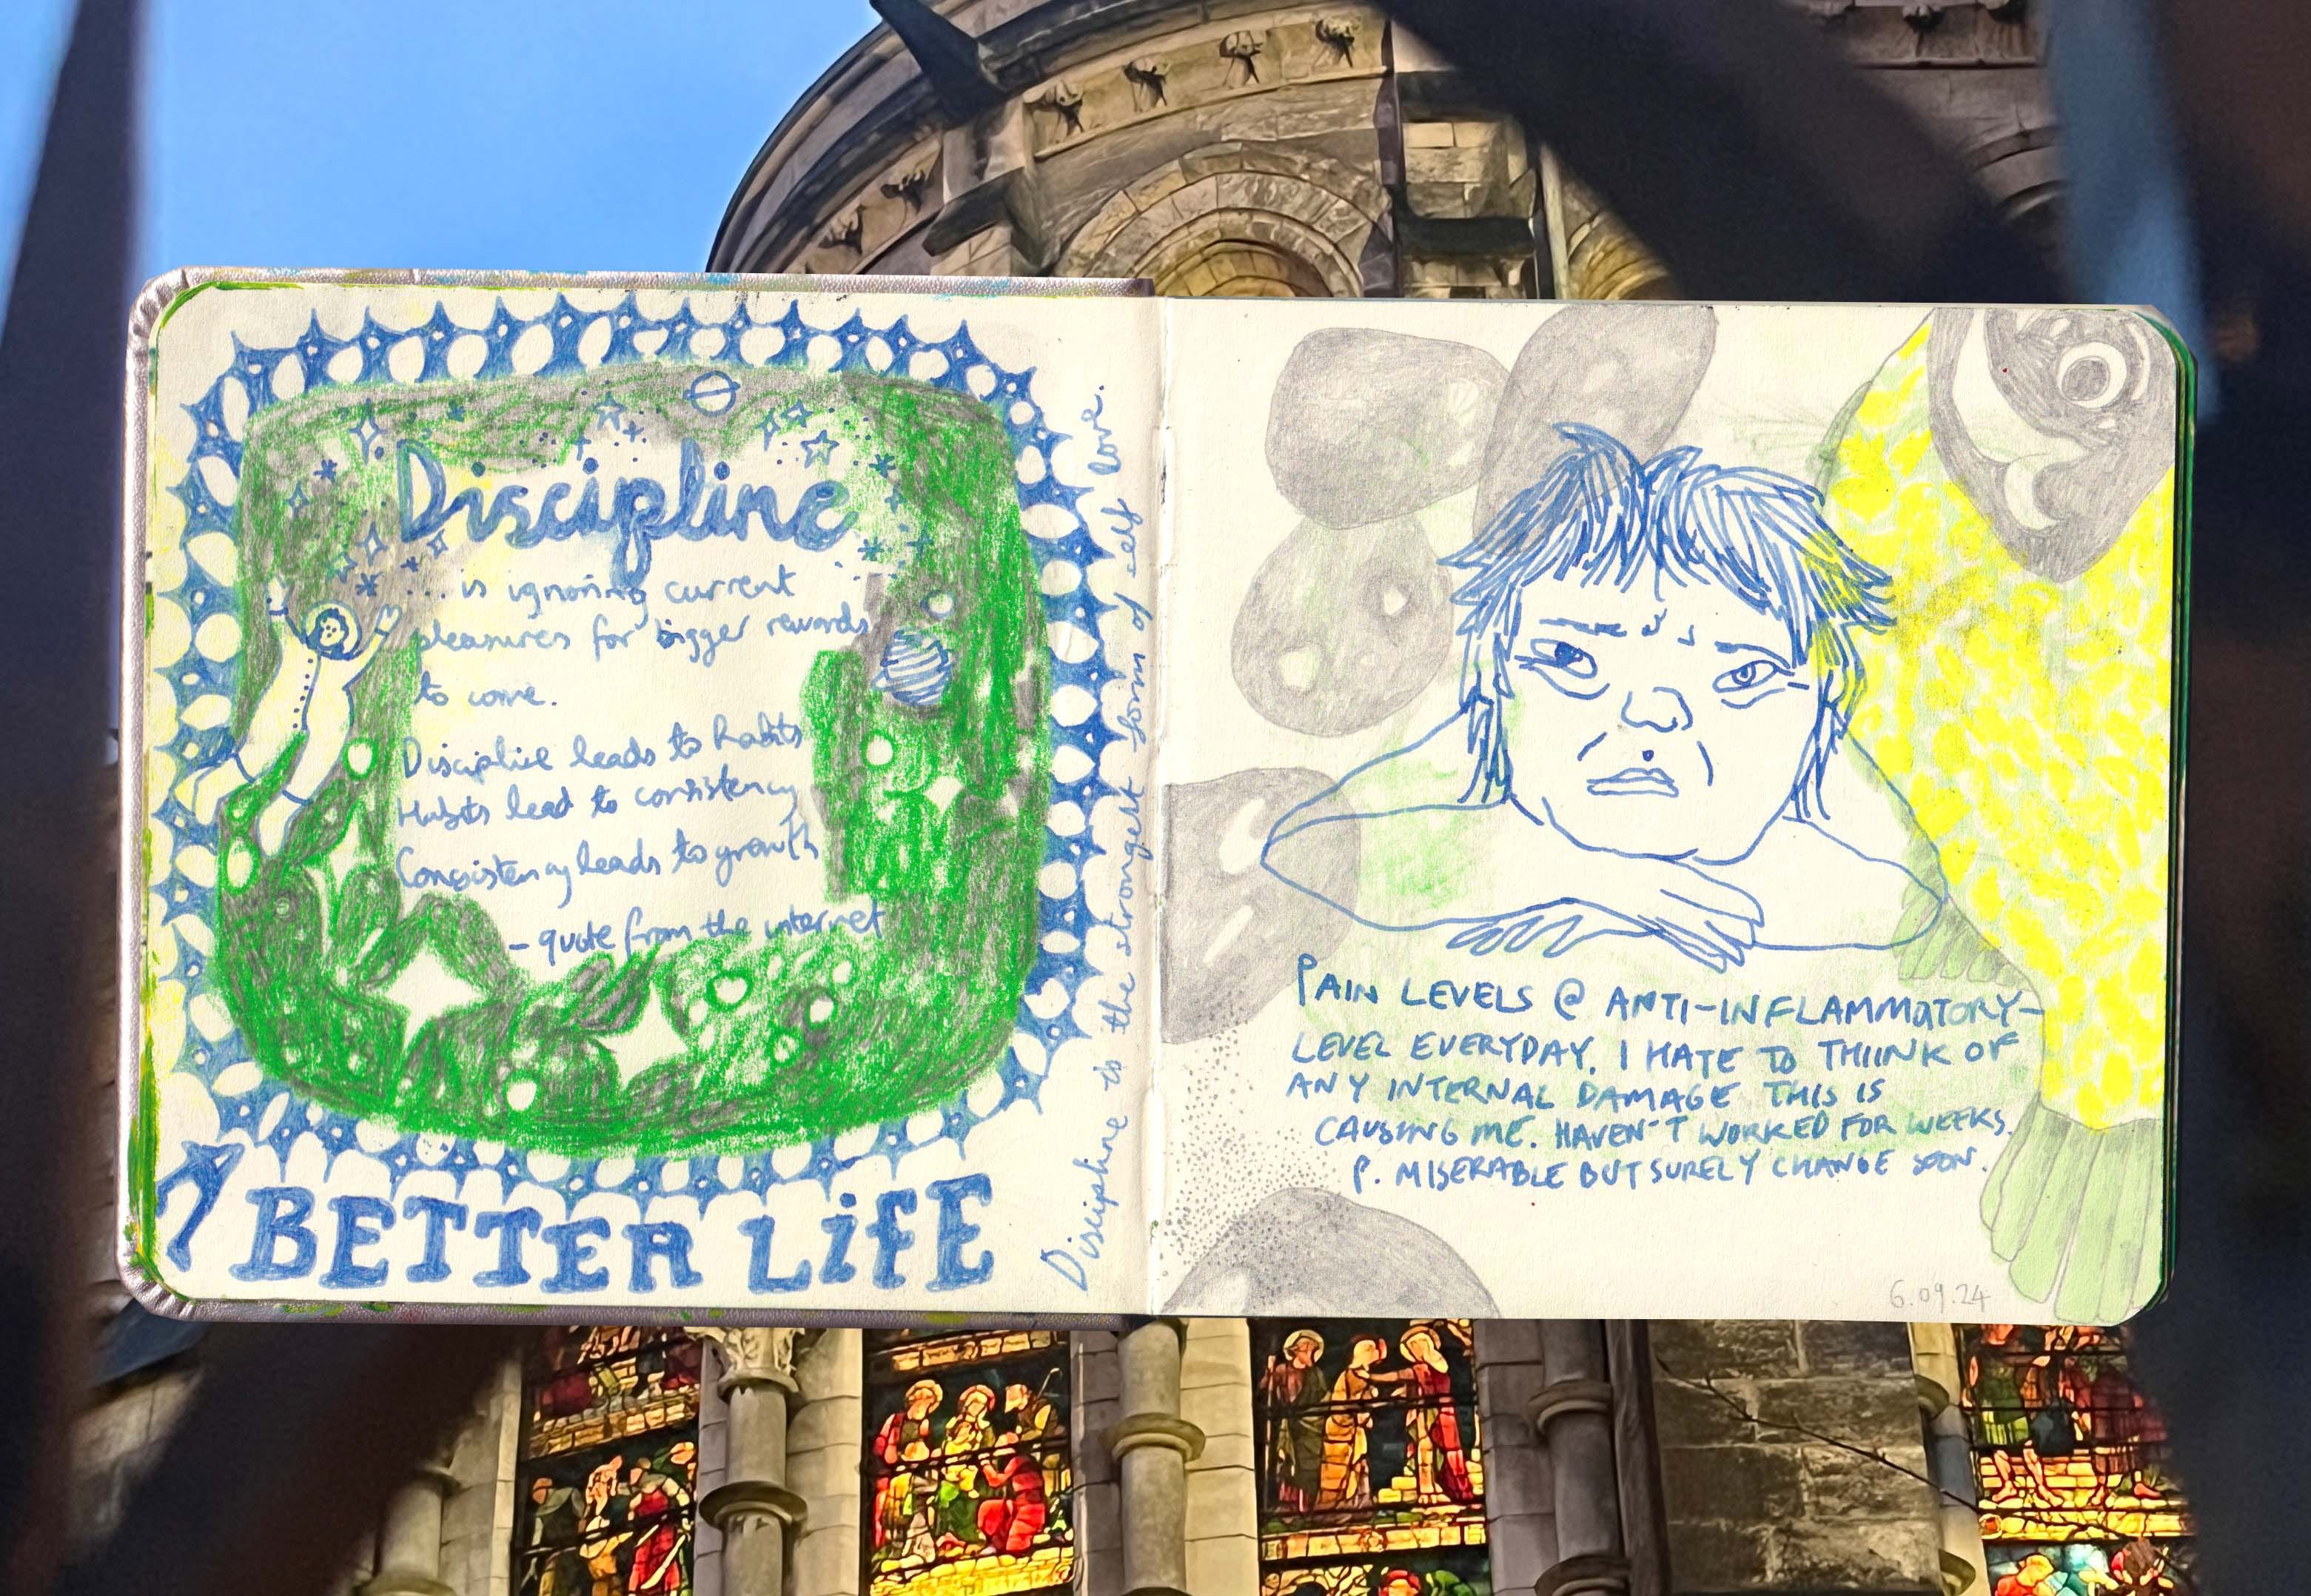 Discipline
... is ignoring current
pleasures for bigger rewards
to come.
Discipline leads to habits
Habits lead to consistency
Consistency leads to growth
- quote from the internet
BETTER LiFE
Discipline is the strongest form of self love.
PAIN LEVELS @ ANTI-INFLAMMATORY-
LEVEL EVERYDAY. I HATE TO THIINK OF
ANY INTERNAL DAMAGE THIS IS
CAUSING ME. HAVEN'T WORKED FOR WEEKS.
P. MISERABLE BUT SURELY CHANGE SOON.
6.09.24